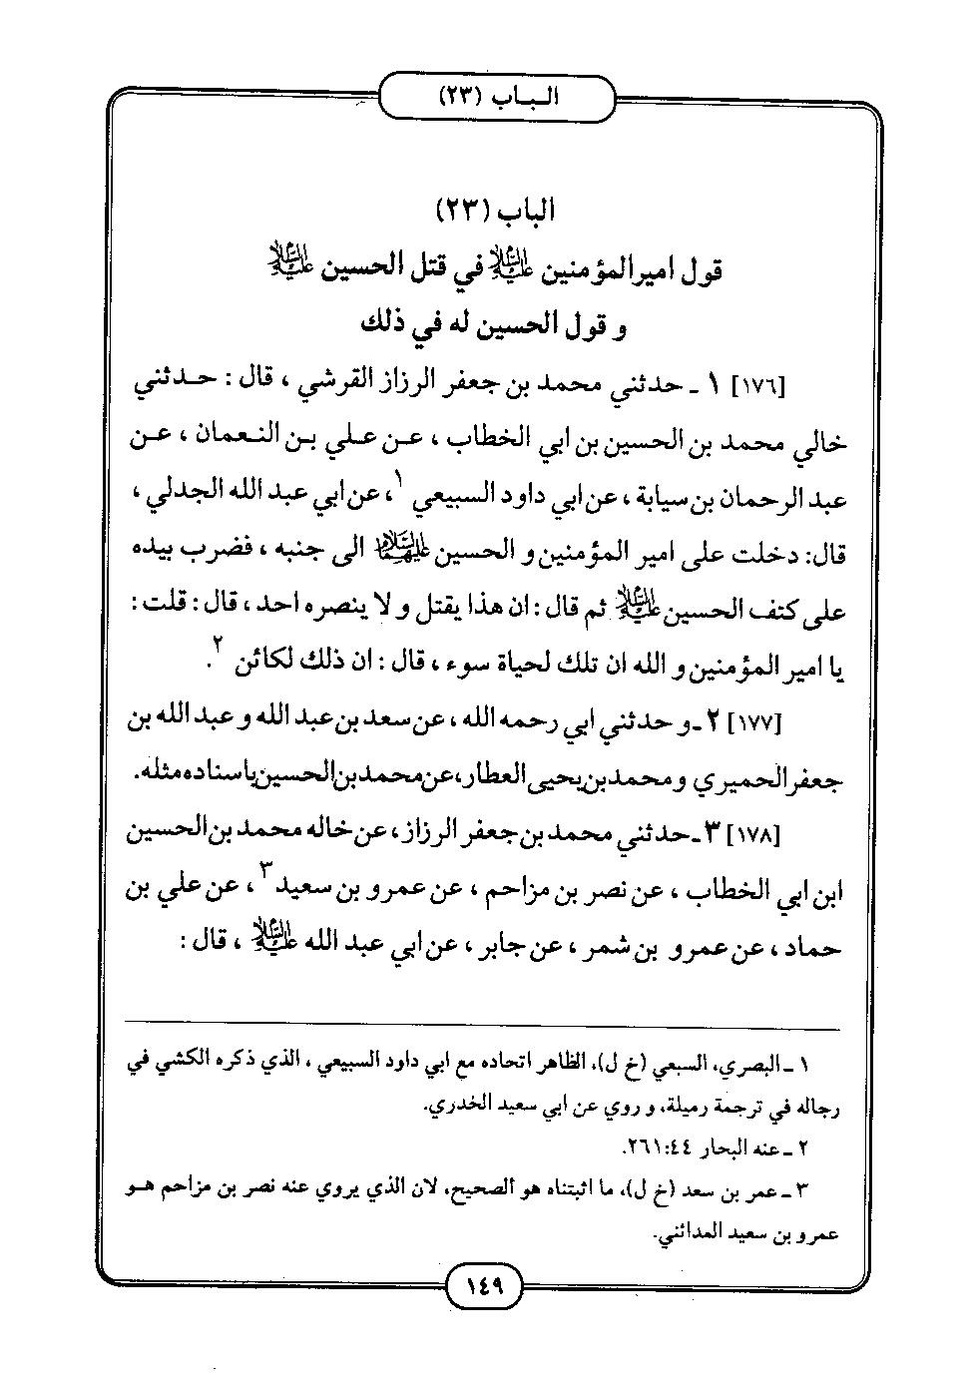 البـاب (٢٣)
الباب (٢٣)
قول اميرالمؤمنين عليه‌السلام في قتل الحسين عليه‌السلام
و قول الحسين له في ذلك
[١٧٦] ١ ـ حدثني محمد بن جعفر الرزاز القرشي ، قال : حـدثني
خالي محمد بن الحسين بن ابي الخطاب ، عـن عـلي بـن النـعمان ، عـن
عبد الرحمان بن سيابة ، عن ابي داود السبيعي ١، عن ابي عبد الله الجدلي ،
قال: دخلت على امير المؤمنين و الحسين عليهما‌السلام الى جنبه ، فضرب بيده
على كتف الحسين عليه‌السلام ثم قال : ان هذا يقتل و لا ينصره احد ، قال : قلت :
يا امير المؤمنين و الله ان تلك لحياة سوء ، قال : ان ذلك لكائن ٢.
[١٧٧] ٢ـ و حدثني ابي رحمه الله ، عن سعد بن عبد الله و عبد الله بن
جعفر الحميري و محمد بن يحيى العطار، عن محمد بن الحسين باسناده مثله.
[١٧٨] ٣ـ حدثني محمد بن جعفر الرزاز، عن خاله محمد بن الحسين
ابن ابي الخطاب ، عن نصر بن مزاحم ، عن عمرو بن سعيد ٣، عن علي بن
حماد ، عن عمرو بن شمر ، عن جابر ، عن ابي عبد الله عليه‌السلام ، قال :
١ ـ البصري، السبعي (خ ل)، الظاهر اتحاده مع ابي داود السبيعي ، الذي ذكره الكشي في
رجاله في ترجمة رميلة، و روي عن ابي سعيد الخدري.
٢ ـ عنه البحار ٤٤:٢٦١.
٣ ـ عمر بن سعد (خ ل)، ما اثبتناه هو الصحيح، لان الذي يروي عنه نصر بن مزاحم هـو
عمرو بن سعيد المدائني.
١٤٩